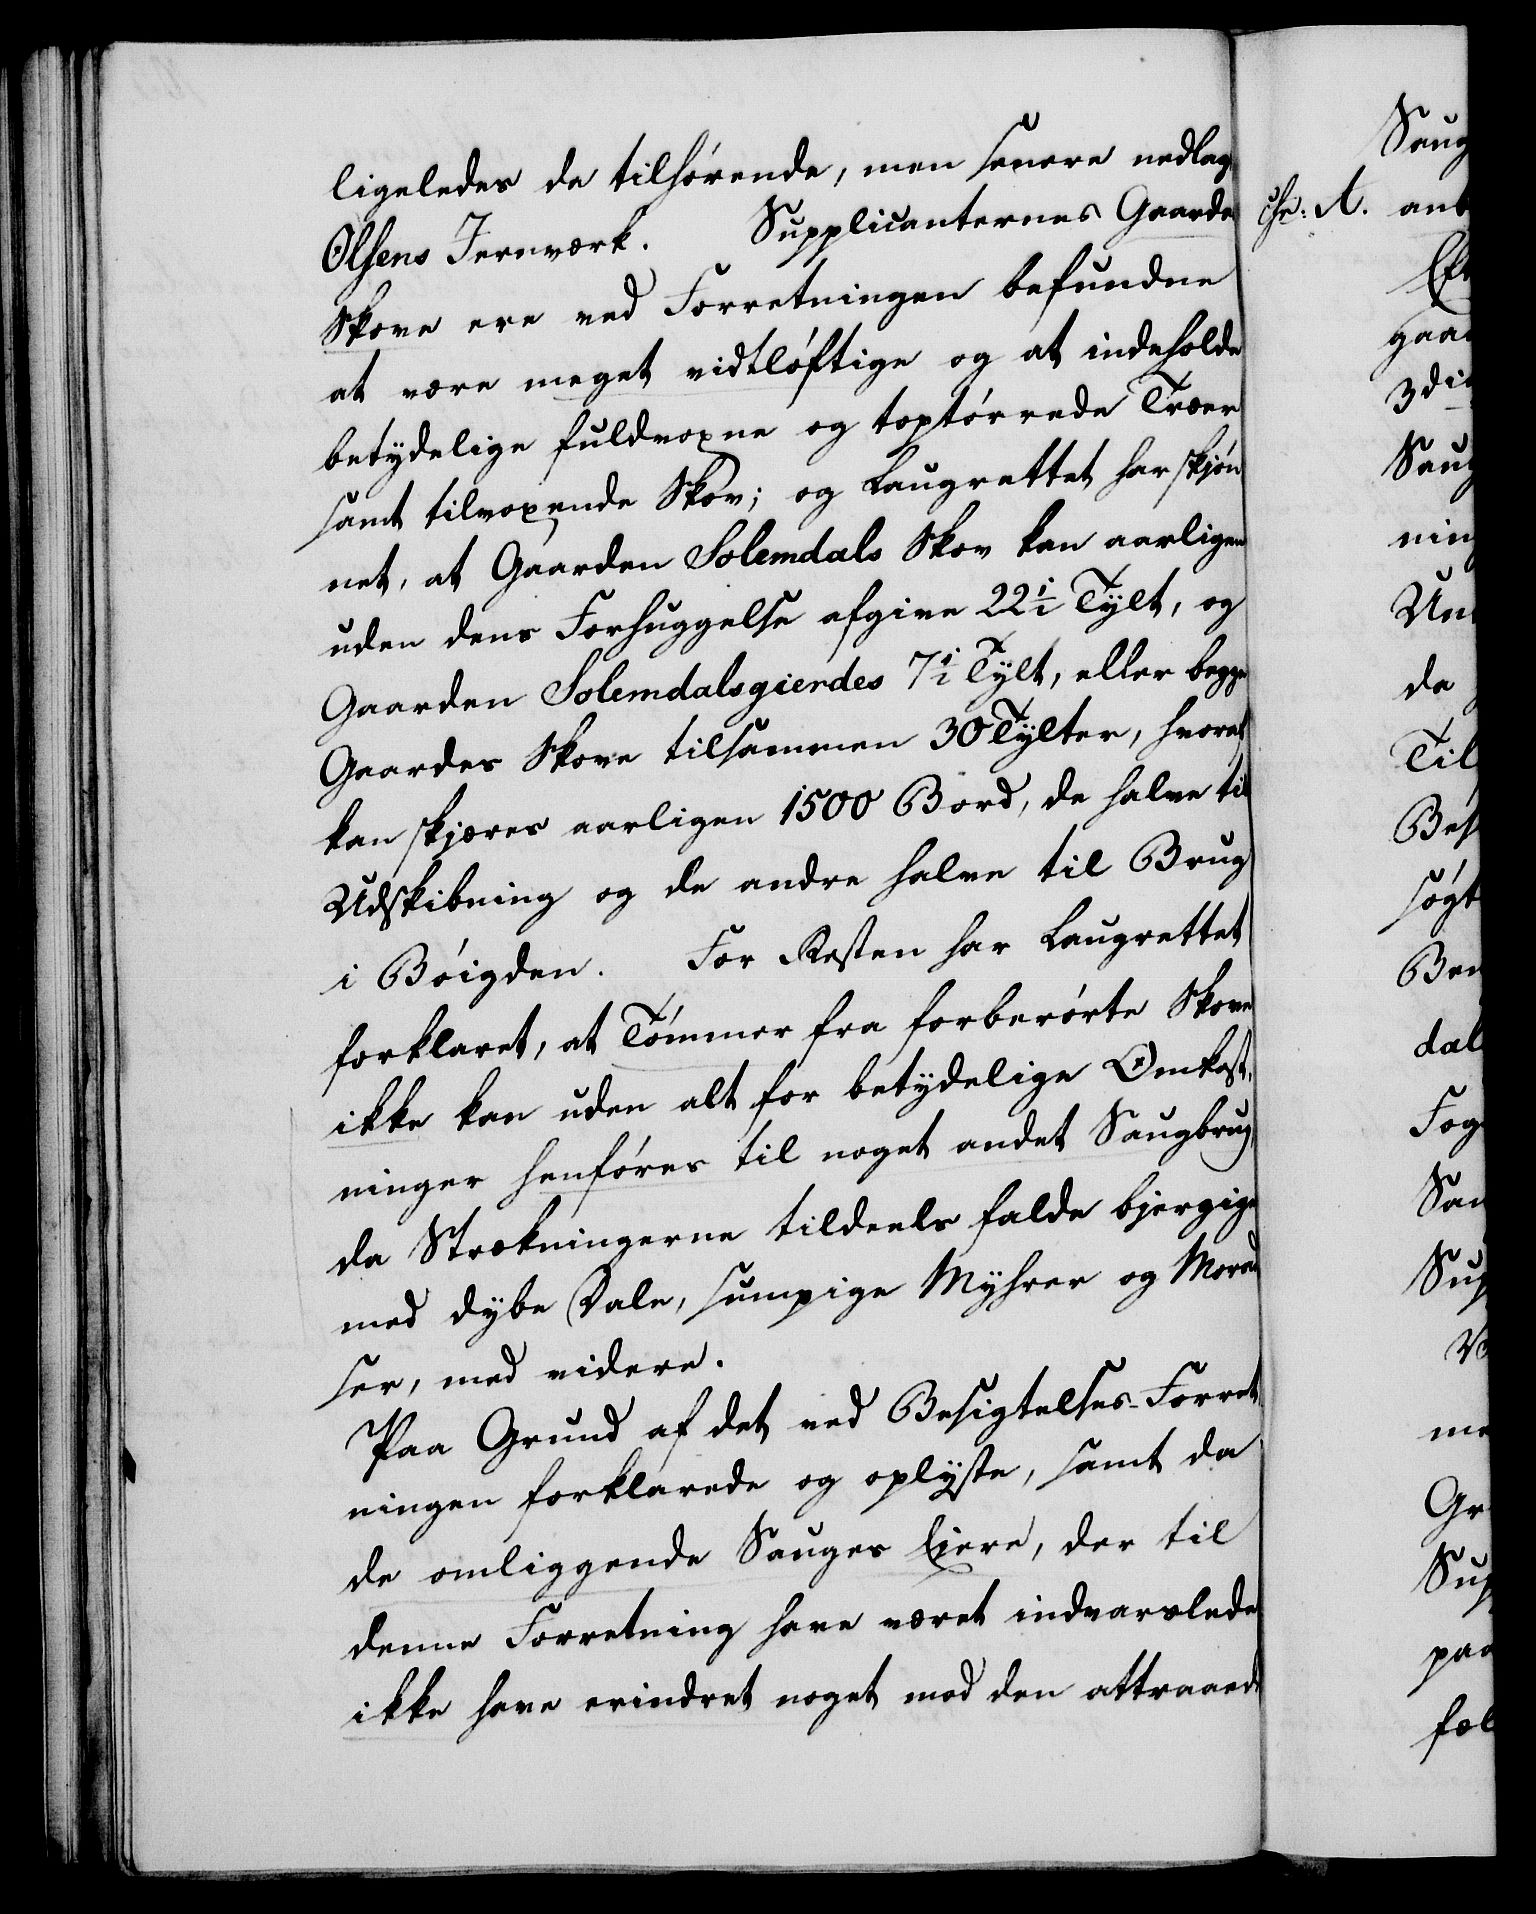 ligeledes da tilhørende, men senere nedlag,
Olsens Jernværk. Supplicanternes Gaarde
Skove ere ved Forretningen befundne
at være meget vidtløftige og at indeholde
betydelige fuldvoxne og toptørrede Træer
samt tilvoxende Skov; og Laugrettet har skjøn
net, at Gaarden Solemdals Skov kan aarligen
uden dens Forhuggelse afgive 22½ Tylt, og
Gaarden Solemdalsgierdes 7½ Tylt, eller begge
Gaardes Skove tilsammen 30 Tylter, hvoraf
kan skjæres aarligen 1500 Bord, de halve til
Udskibning og de andre halve til Brug
i Bøigden. For Resten har Laugrettet
forklaret, at Tømmer fra forberørte Skove
ikke kan uden alt for betydelige Omkost,
ninger henføres til noget andet Saugbrug,
da Strækningerne tildeels falde bjergige
med dybe Dale, sumpige Myhrer og Morad
ser, med videre.
Paa Grund af det ved Besigtelses-Forret,
ningen forklarede og oplyste, samt da
de omliggende Sauges Eiere, der til
denne Forretning have været indvarslede
ikke have erindret noget mod den attraaede
Saug
A. ant
Eft
gaa
3die
Saug
ning
Un
da
Til
Bes
søgt
Ben
dal
Fog
San
Sup
me
Gr
Sup
paa
fæl